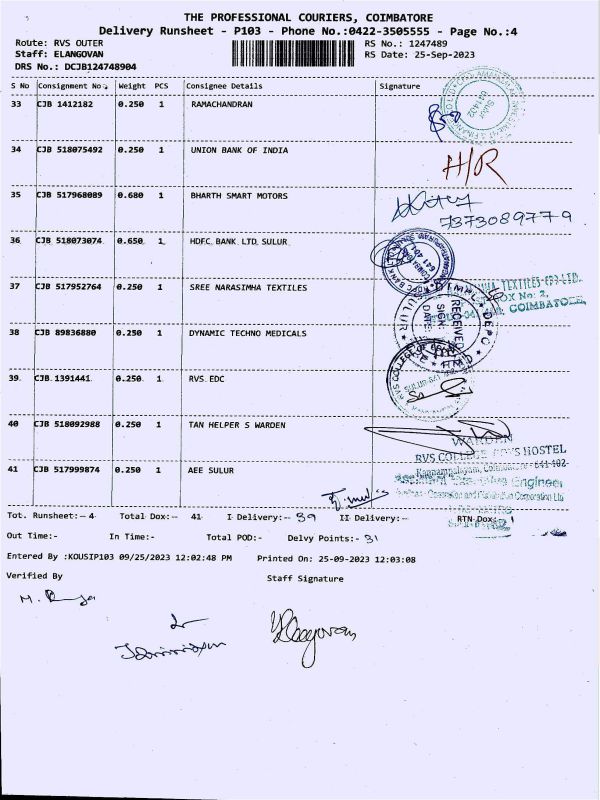 THE PROFESSIONAL COURIERS, COIMBATORE
Delivery Runsheet - P103 - Phone No.:0422-3505555 - Page No.:4
Route: RVS OUTER
RS No.: 1247489
Staff: ELANGOVAN
RS Date: 25-Sep-2023
DRS No.: DCJB124748904
S No Consignment No. Weight PCS Consignee Details Signature
33 CJB 1412182 0.250 1 RAMACHANDRAN
Sulur
641402
34 CJB 518075492 0.250 1 UNION BANK OF INDIA
H/R
35 CJB 517968089 0.680 1 BHARTH SMART MOTORS
7373089779
36 CJB 518073074 0.650 1 HDFC BANK LTD SULUR
37 CJB 517952764 0.250 1 SREE NARASIMHA TEXTILES
TEXTILES (P) LTD.
BOX No: 2,
COIMBATORE,
RECEIVED
SIGN:
DATE:
38 CJB 89836880 0.250 1 DYNAMIC TECHNO MEDICALS
39 CJB 1391441 0.250 1 RVS EDC
RVS COLLEGE OF
40 CJB 518092988 0.250 1 TAN HELPER S WARDEN
WARDEN
RVS COLLEGE BOYS HOSTEL
Kannampalayam, Coimbatore - 641 402.
41 CJB 517999874 0.250 1 AEE SULUR
Engineer
Generation and Distribution Corporation Ltd
Tot. Runsheet:- 4 Total Dox:- 41 I Delivery:- 39 II Delivery:- RTN Dox:- 1
Out Time:- In Time:- Total POD:- Delvy Points:- 31
Entered By :KOUSIP103 09/25/2023 12:02:48 PM Printed On: 25-09-2023 12:03:08
Verified By Staff Signature